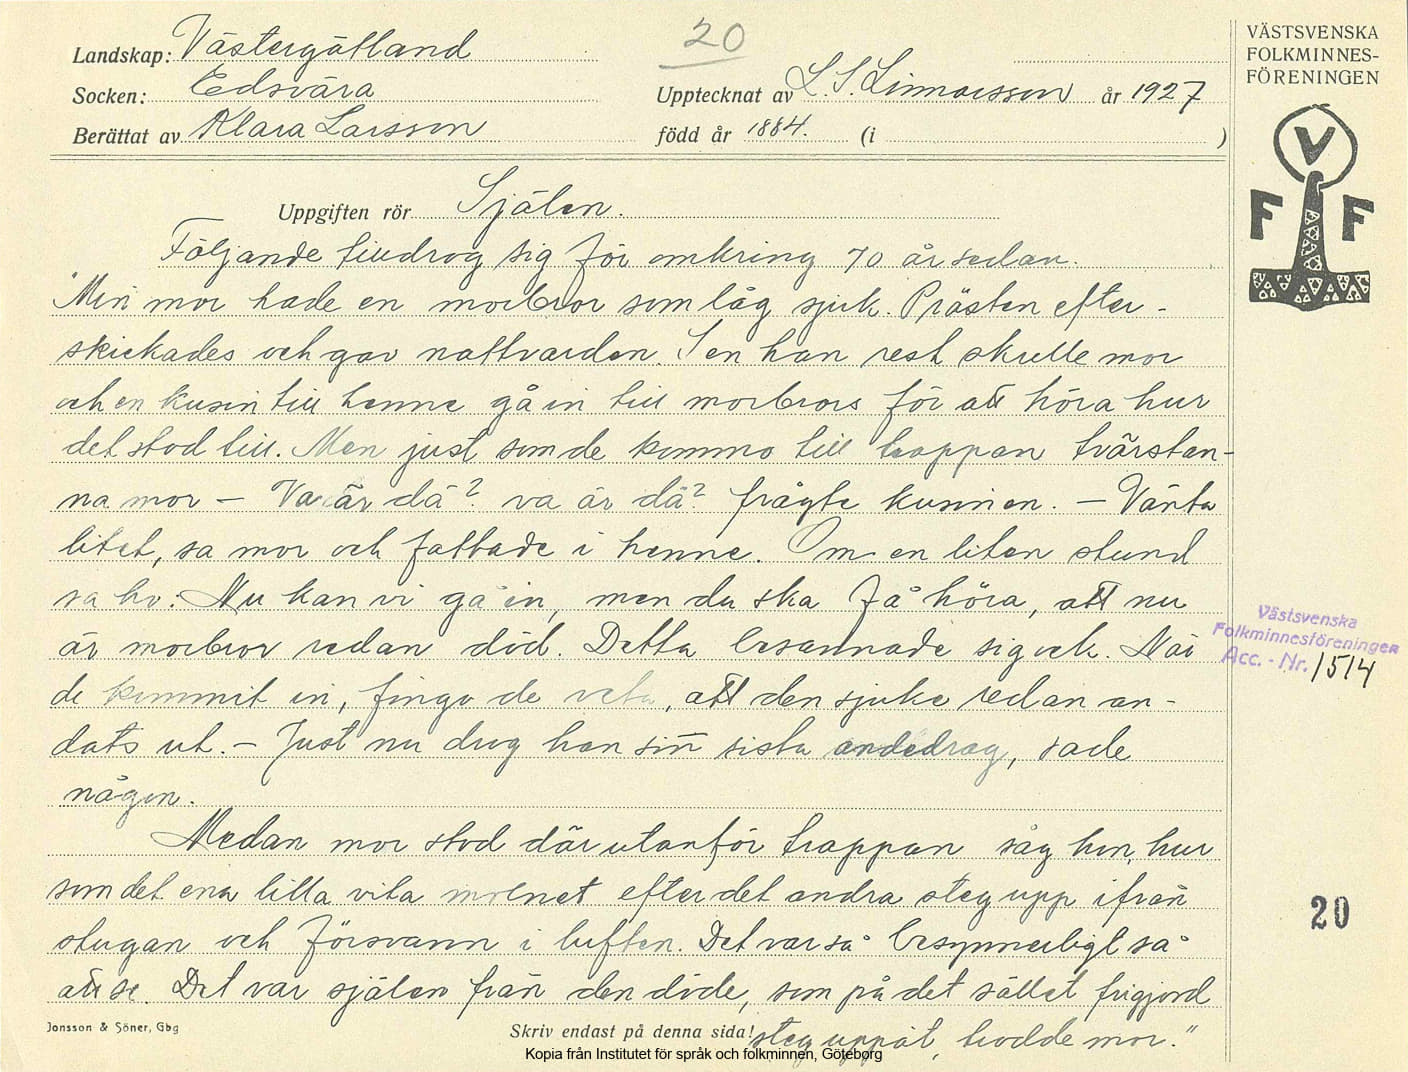 20
VÄSTSVENSKA
FOLKMINNES-
FÖRENINGEN
V
F F
Landskap: Västergötland
Socken: Edsvära
Upptecknat av L. S. Linnarsson år 1927
Berättat av Klara Larsson född år 1884. (i )
Uppgiften rör Själen.
Följande tilldrog sig för omkring 70 år sedan.
"Min mor hade en morbror som låg sjuk. Prästen efter-
skickades och gav nattvarden. Sen han rest skulle mor
och en kusin till henne gå in till morbrors för att höra hur
det stod till. Men just som de kommo till trappan tvärstan-
na mor – Va är dä? va är dä? frågte kusinen. – Vänta
litet, sa mor och fattade i henne. Om en liten stund
sa ho: Nu kan vi gå in, men du ska få höra, att nu
är morbror redan död. Detta besannade sig ock. När
de kommit in, fingo de veta, att den sjuke redan an-
dats ut. – Just nu drog han sin sista andedrag, sade
någon.
Medan mor stod där utanför trappan såg hon, hur
som det ena lilla vita molnet efter det andra steg upp ifrån
stugan och försvann i luften. Det var så besynnerligt så
att se. Det var själen från den döde, som på det sättet frigjord
steg uppåt, trodde mor."
Västsvenska
Folkminnesföreningen
Acc. - Nr. 1514
20
Jonsson & Söner, Gbg
Skriv endast på denna sida!
Kopia från Institutet för språk och folkminnen, Göteborg